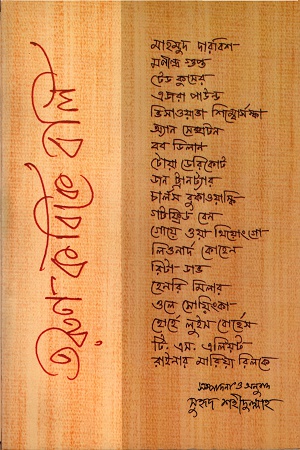 তরুণ কবিকে বলি
মাহমুদ দারবিশ
মনীন্দ্র গুপ্ত
টেড কুসের
এজরা পাউন্ড
ভিসওয়াভা শিম্বোর্সকা
অ্যান সেক্সটন
বব ডিলান
টোয়া ডেরিকোট
জন ট্রানট্যার
চার্লস বুকাওয়াস্কি
গটফ্রিড বেন
গোয়ে ওয়া থিয়োংগো
লিওনার্দ কোহেন
রিটা ডাভ
হেনরি মিলার
ওলে সোয়িংকা
হোর্হে লুইস বোর্হেস
টি. এস. এলিয়ট
রাইনার মারিয়া রিলকে
সম্পাদনা ও অনুবাদ
সুহৃদ শহীদুল্লাহ